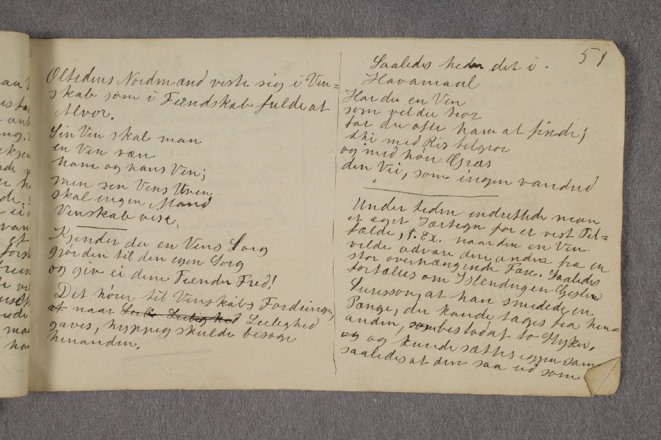 Oltidens Nordmænd viste sig i Ven-
skab som i Fiendskab fulde af
Alvor.
Sin Ven skal man
en Ven vær
ham og hans Ven;
men sen Vens Uven
skal ingen Mand
Venskab vise.
Kjender du en Vens Sorg
gjør den til den egen Sorg
og giv ei dine Fiender Fred!
Det hører til Venskabs Fordring,
at naar Leilighed
gaves, hyppig skulde besøge
hinanden.
51
Saaledes heder det i
Havamaal
Har du en Ven
som vel du tror
far du ofte ham at finde;
thi med Ris tilgror
og med høit Græs
den Vei, som ingen vandred
Under Leden indrettede man
et eget Jærtegn for et vist Til-
fælde, f. Ex. naar den en Ven
vilde advare den anden fra en
stor overhængende Fare. Saaledes
fortælles om Islendingen Gisle
Sursson, at han smedede en
Penge, der kunde tages fra hin-
anden, bestod af to Styker,
og kunde sættes igjen sam
saaledes at den saa ud som